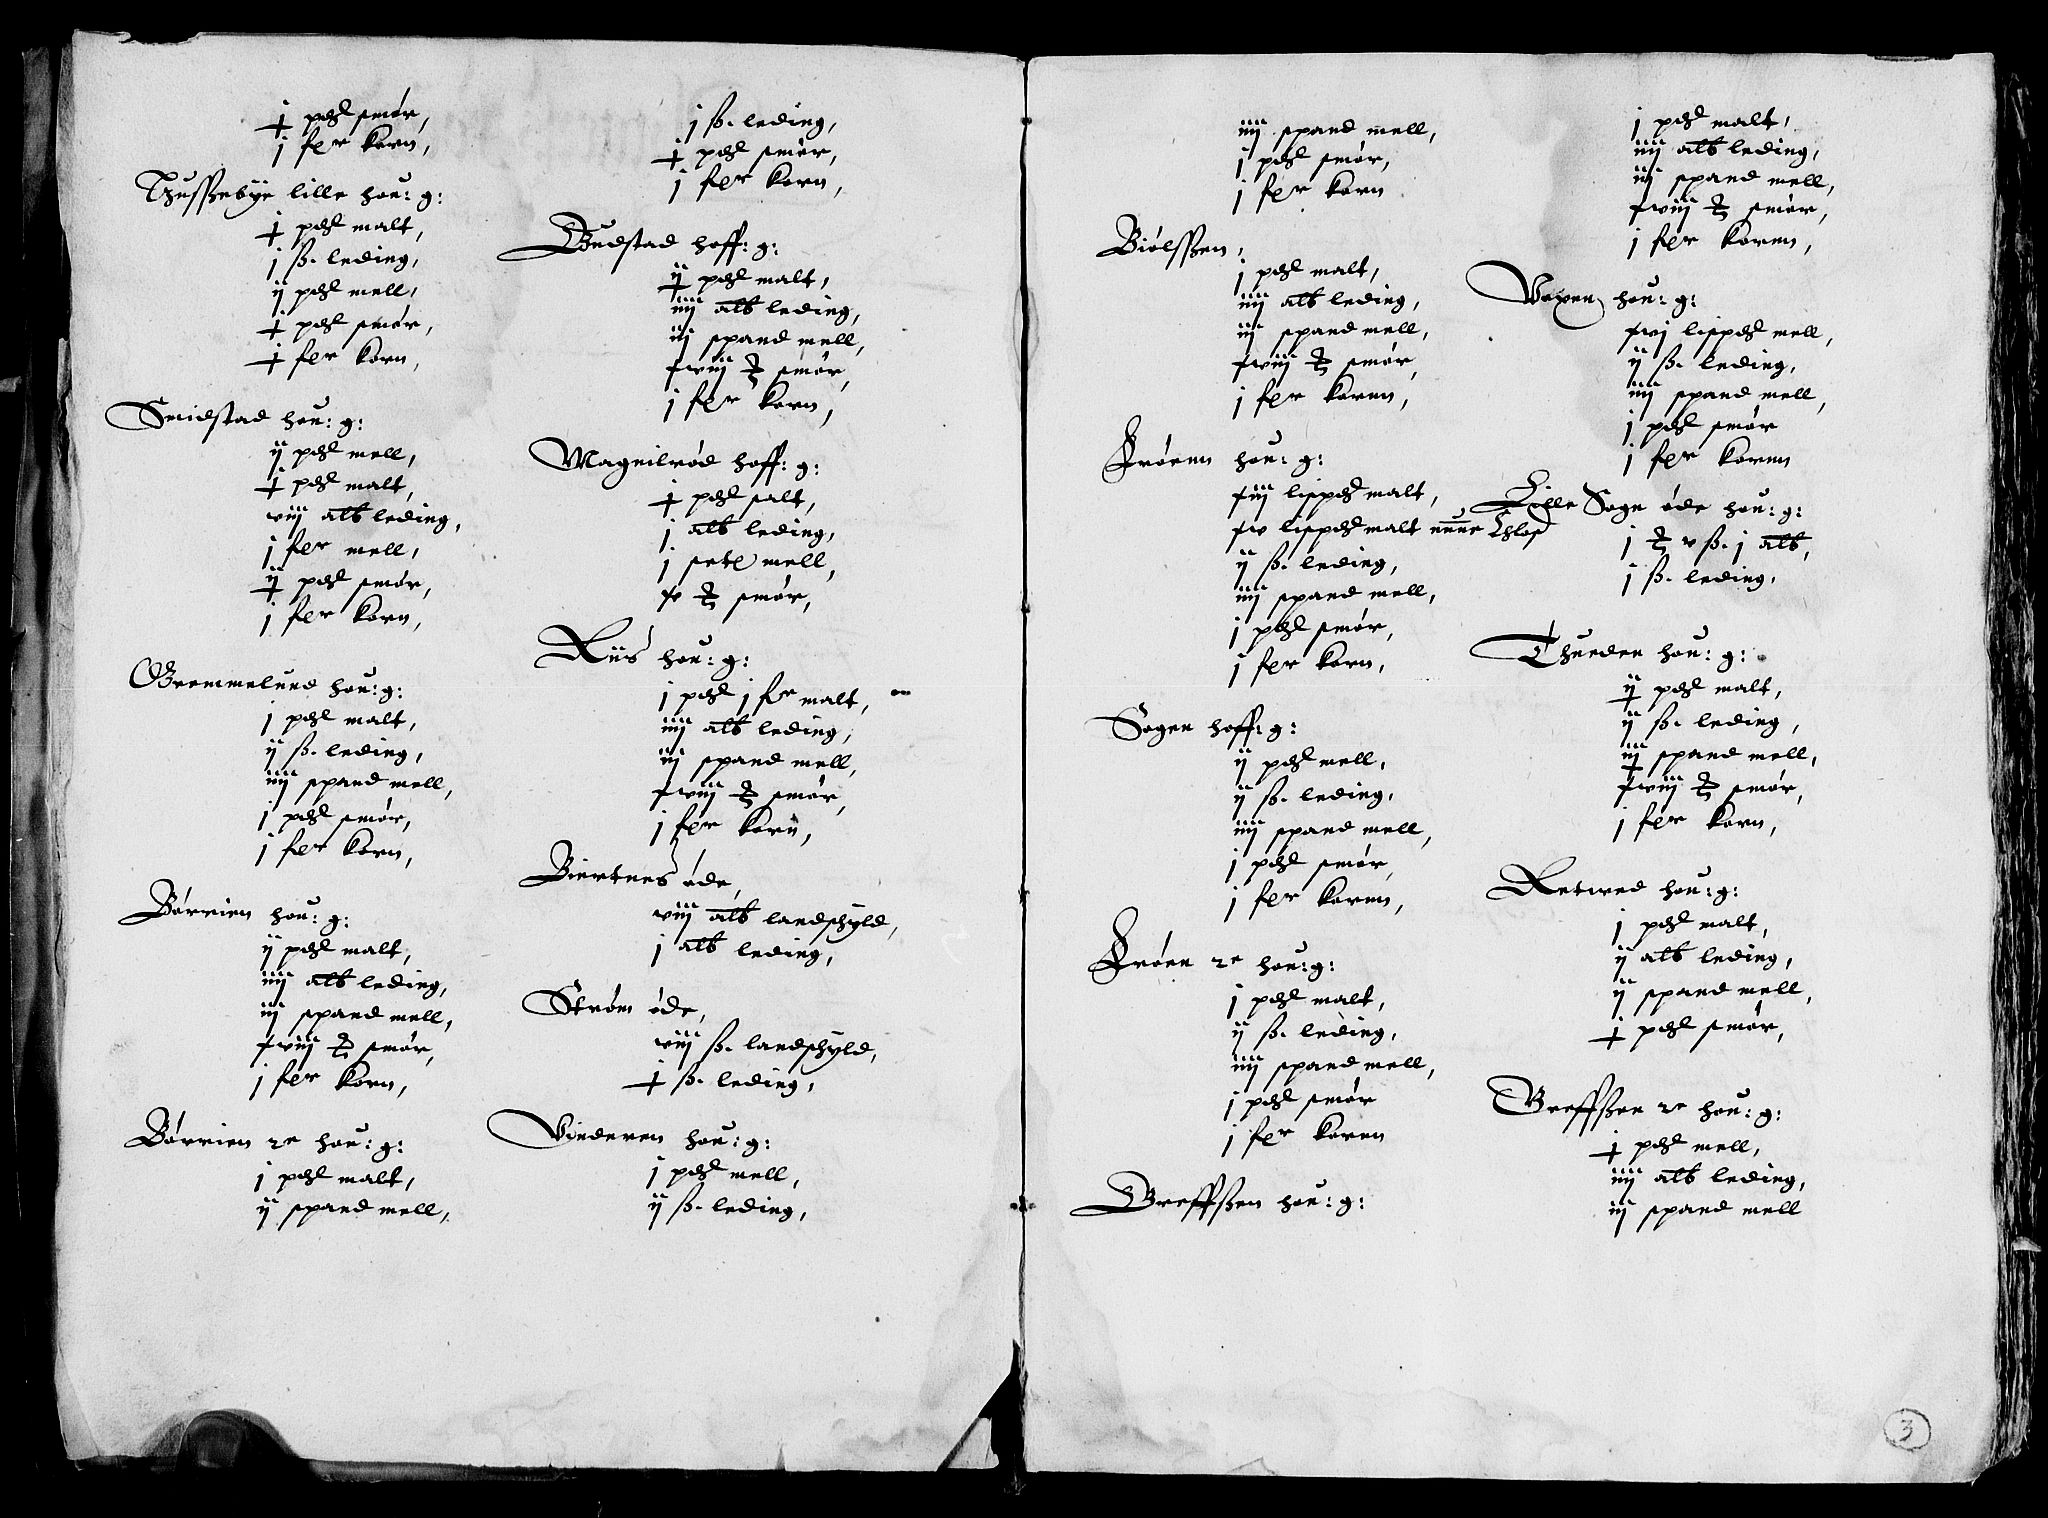 ɉ pd smør,
j fer korn,
Hussebye lille hou: g:
ɉ pd malt,
j ß. leding,
ij pd mell,
ɉ pd smør,
ɉ fer korn,
Smidstad hou: g:
ij pd mell,
ɉ pd malt,
viij alb leding,
j fer mell,
iɉ pd smør,
j fer korn,
Gremmelund hou: g:
j pd malt,
ij ß. leding,
iiij spand mell,
j pd smør,
j fer korn,
Børrien hou: g:
ij pd malt,
iiij alb leding,
iij spand mell,
xviij ℔ smør,
j fer korn,
Børrien 2n hou: g:
j pd malt,
ij spand mell,
j ß. leding,
ɉ pd smør,
j fer korn,
Gudstad hoff: g:
iɉ pd malt,
iiij alb leding,
iij spand mell,
xviij ℔ smør,
j fer korn,
Magnilrød hoff: g:
ɉ pd salt,
j alb leding,
j setl mell,
xv ℔ smør,
Riis hou: g:
j pd j fer malt,
iiij alb leding,
iij spand mell,
xviij ℔ smør,
j fer korn,
Biertnes øde,
viij alb landschyld,
j alb leding,
Strøm øde,
viij ß. landschyld,
ɉ ß. leding,
Vinderen hou: g:
j pd mell,
ij ß. leding,
iiij spand mell,
j pd smør,
j fer korn
Biølssen,
j pd malt,
iiij alb leding,
iij spand mell,
xviij ℔ smør,
j fer koren,
Frøen hou: g:
xiij lispd malt,
xv lispd malt
ij ß. leding,
iiij spand mell,
j pd smør,
j fer korn,
Sogen hoff: g:
ij pd mell,
ij ß. leding,
iiij spand mell,
j pd smør,
j fer koren,
Frøen 2n hou: g:
j pd malt,
ij ß. leding,
iiij spand mell,
j pd smør
j fer koren
Greffssen hou: g:
j pd malt,
iiij alb leding,
iij spand mell,
xviij ℔ smør,
j fer koren,
Voxen hou: g:
xvj lispd mell,
ij ß. leding,
iiij spand mell,
j pd smør
j fer koren
Lille Sogn øde hou: g:
j ℔ v ß. j alb,
j ß. leding,
Thueden hou: g:
iɉ pd malt,
ij ß. leding,
iiɉ spand mell,
xviij ℔ smør,
j fer korn,
Retwed hou: g:
j pd malt,
ij alb leding,
ij spand mell,
ɉ pd smør,
Greffssen 2n hou: g:
ɉ pd mell,
iiij alb leding,
iij spand mell
3